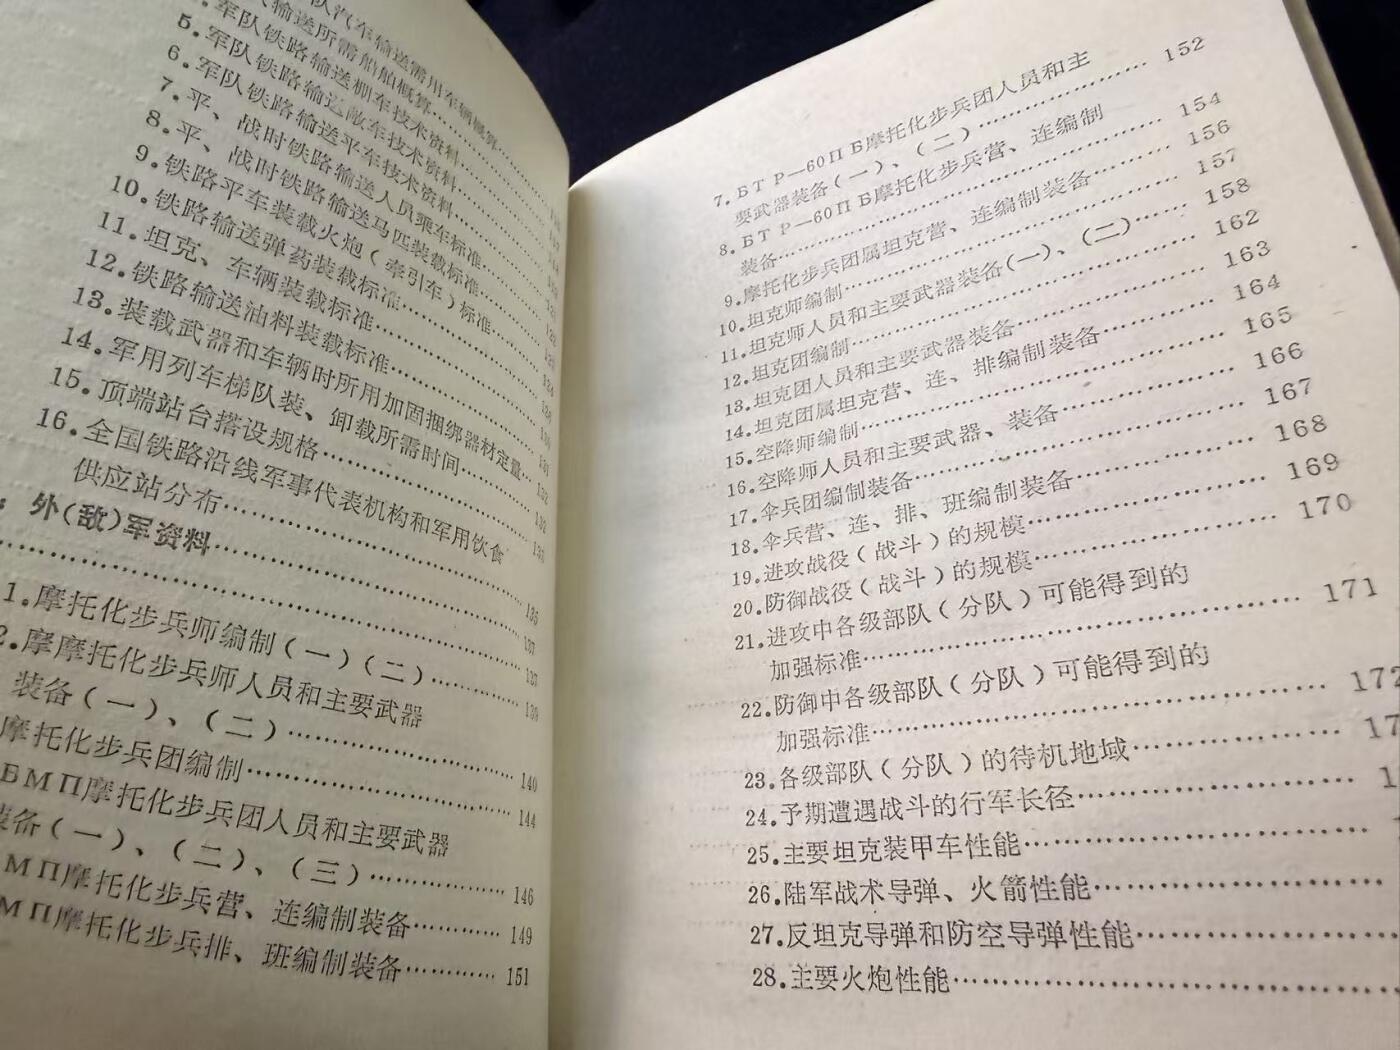 队汽车输送需用车辆概算
输送所需船舶概算
5.军队铁路输送棚车技术资料
6.军队铁路输送敞车技术资料
7.军队铁路输送平车技术资料
8.平、战时铁路输送人员乘车标准
9.平、战时铁路输送马匹装载标准
10.铁路平车装载火炮(牵引车)标准
11.铁路输送弹药装载标准
12.坦克、车辆装载标准
13.铁路输送油料装载标准
14.装载武器和车辆时所用加固捆绑器材定量
15.军用列车梯队装、卸载所需时间
16.顶端站台搭设规格
全国铁路沿线军事代表机构和军用饮食
供应站分布……135
外(敌)军资料……137
1.摩托化步兵师编制(一)(二)……139
2.摩摩托化步兵师人员和主要武器
装备(一)、(二)……140
摩托化步兵团编制……144
БМП摩托化步兵团人员和主要武器
装备(一)、(二)、(三)……146
МП摩托化步兵营、连编制装备……149
МП摩托化步兵排、班编制装备……151
7.БТР—60ПБ摩托化步兵团人员和主
要武器装备(一)、(二)……152
8.БТР—60ПБ摩托化步兵营、连编制
装备……154
9.摩托化步兵团属坦克营、连编制装备……156
10.坦克师编制……157
11.坦克师人员和主要武器装备(一)、(二)……158
12.坦克团编制……162
13.坦克团人员和主要武器装备……163
14.坦克团属坦克营、连、排编制装备……164
15.空降师编制……165
16.空降师人员和主要武器、装备……166
17.伞兵团编制装备……167
18.伞兵营、连、排、班编制装备……168
19.进攻战役(战斗)的规模……169
20.防御战役(战斗)的规模……170
21.进攻中各级部队(分队)可能得到的
加强标准……171
22.防御中各级部队(分队)可能得到的
加强标准……172
23.各级部队(分队)的待机地域……17
24.予期遭遇战斗的行军长径……1
25.主要坦克装甲车性能……
26.陆军战术导弹、火箭性能……
27.反坦克导弹和防空导弹性能……
28.主要火炮性能……